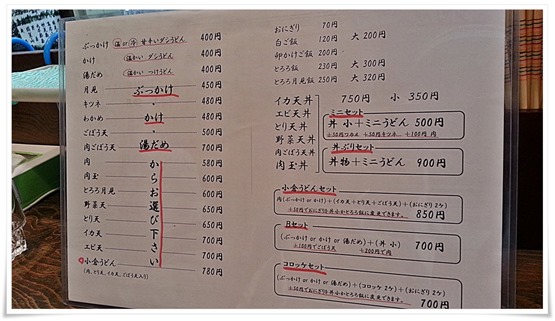 ぶっかけ (温 or 冷) 甘辛いダシうどん 400円
かけ (温かい ダシうどん) 400円
湯だめ (温かい つけうどん) 400円
月見 450円
キツネ 480円
わかめ 480円
ごぼう天 500円
肉ごぼう天 700円
肉 580円
肉玉 600円
とろろ月見 600円
野菜天 650円
とり天 650円
イカ天 700円
エビ天 700円
小倉うどん 780円
(肉、とり天、イカ天、ごぼう天入り)
ぶっかけ
・
かけ
・
湯だめ
からお選び下さい
おにぎり 70円
白ご飯 120円 大 200円
卵かけご飯 200円
とろろ飯 230円 大 300円
とろろ月見飯 250円 大 320円
イカ天丼 750円 小 350円
エビ天丼
とり天丼
野菜天丼
肉ごぼう天丼
肉玉丼
ミニセット
丼 小+ミニうどん 500円
+50円ワカメ +50円キツネ +100円 肉
丼ぶりセット
丼物+ミニうどん 900円
小倉うどんセット
肉(ぶっかけ or かけ)+(イカ天+とり天+ごぼう天)+(おにぎり2ケ)
+50円でおにぎりを丼小かとろろ飯に変更できます。 850円
Bセット
(ぶっかけ or かけ or 湯だめ)+(丼 小) 700円
+100円でごぼう天 +200円で肉
コロッケセット
(ぶっかけ or かけ or 湯だめ)+(コロッケ 2ケ)+(おにぎり 2ケ)
+50円でおにぎりを丼小かとろろ飯に変更できます。 700円